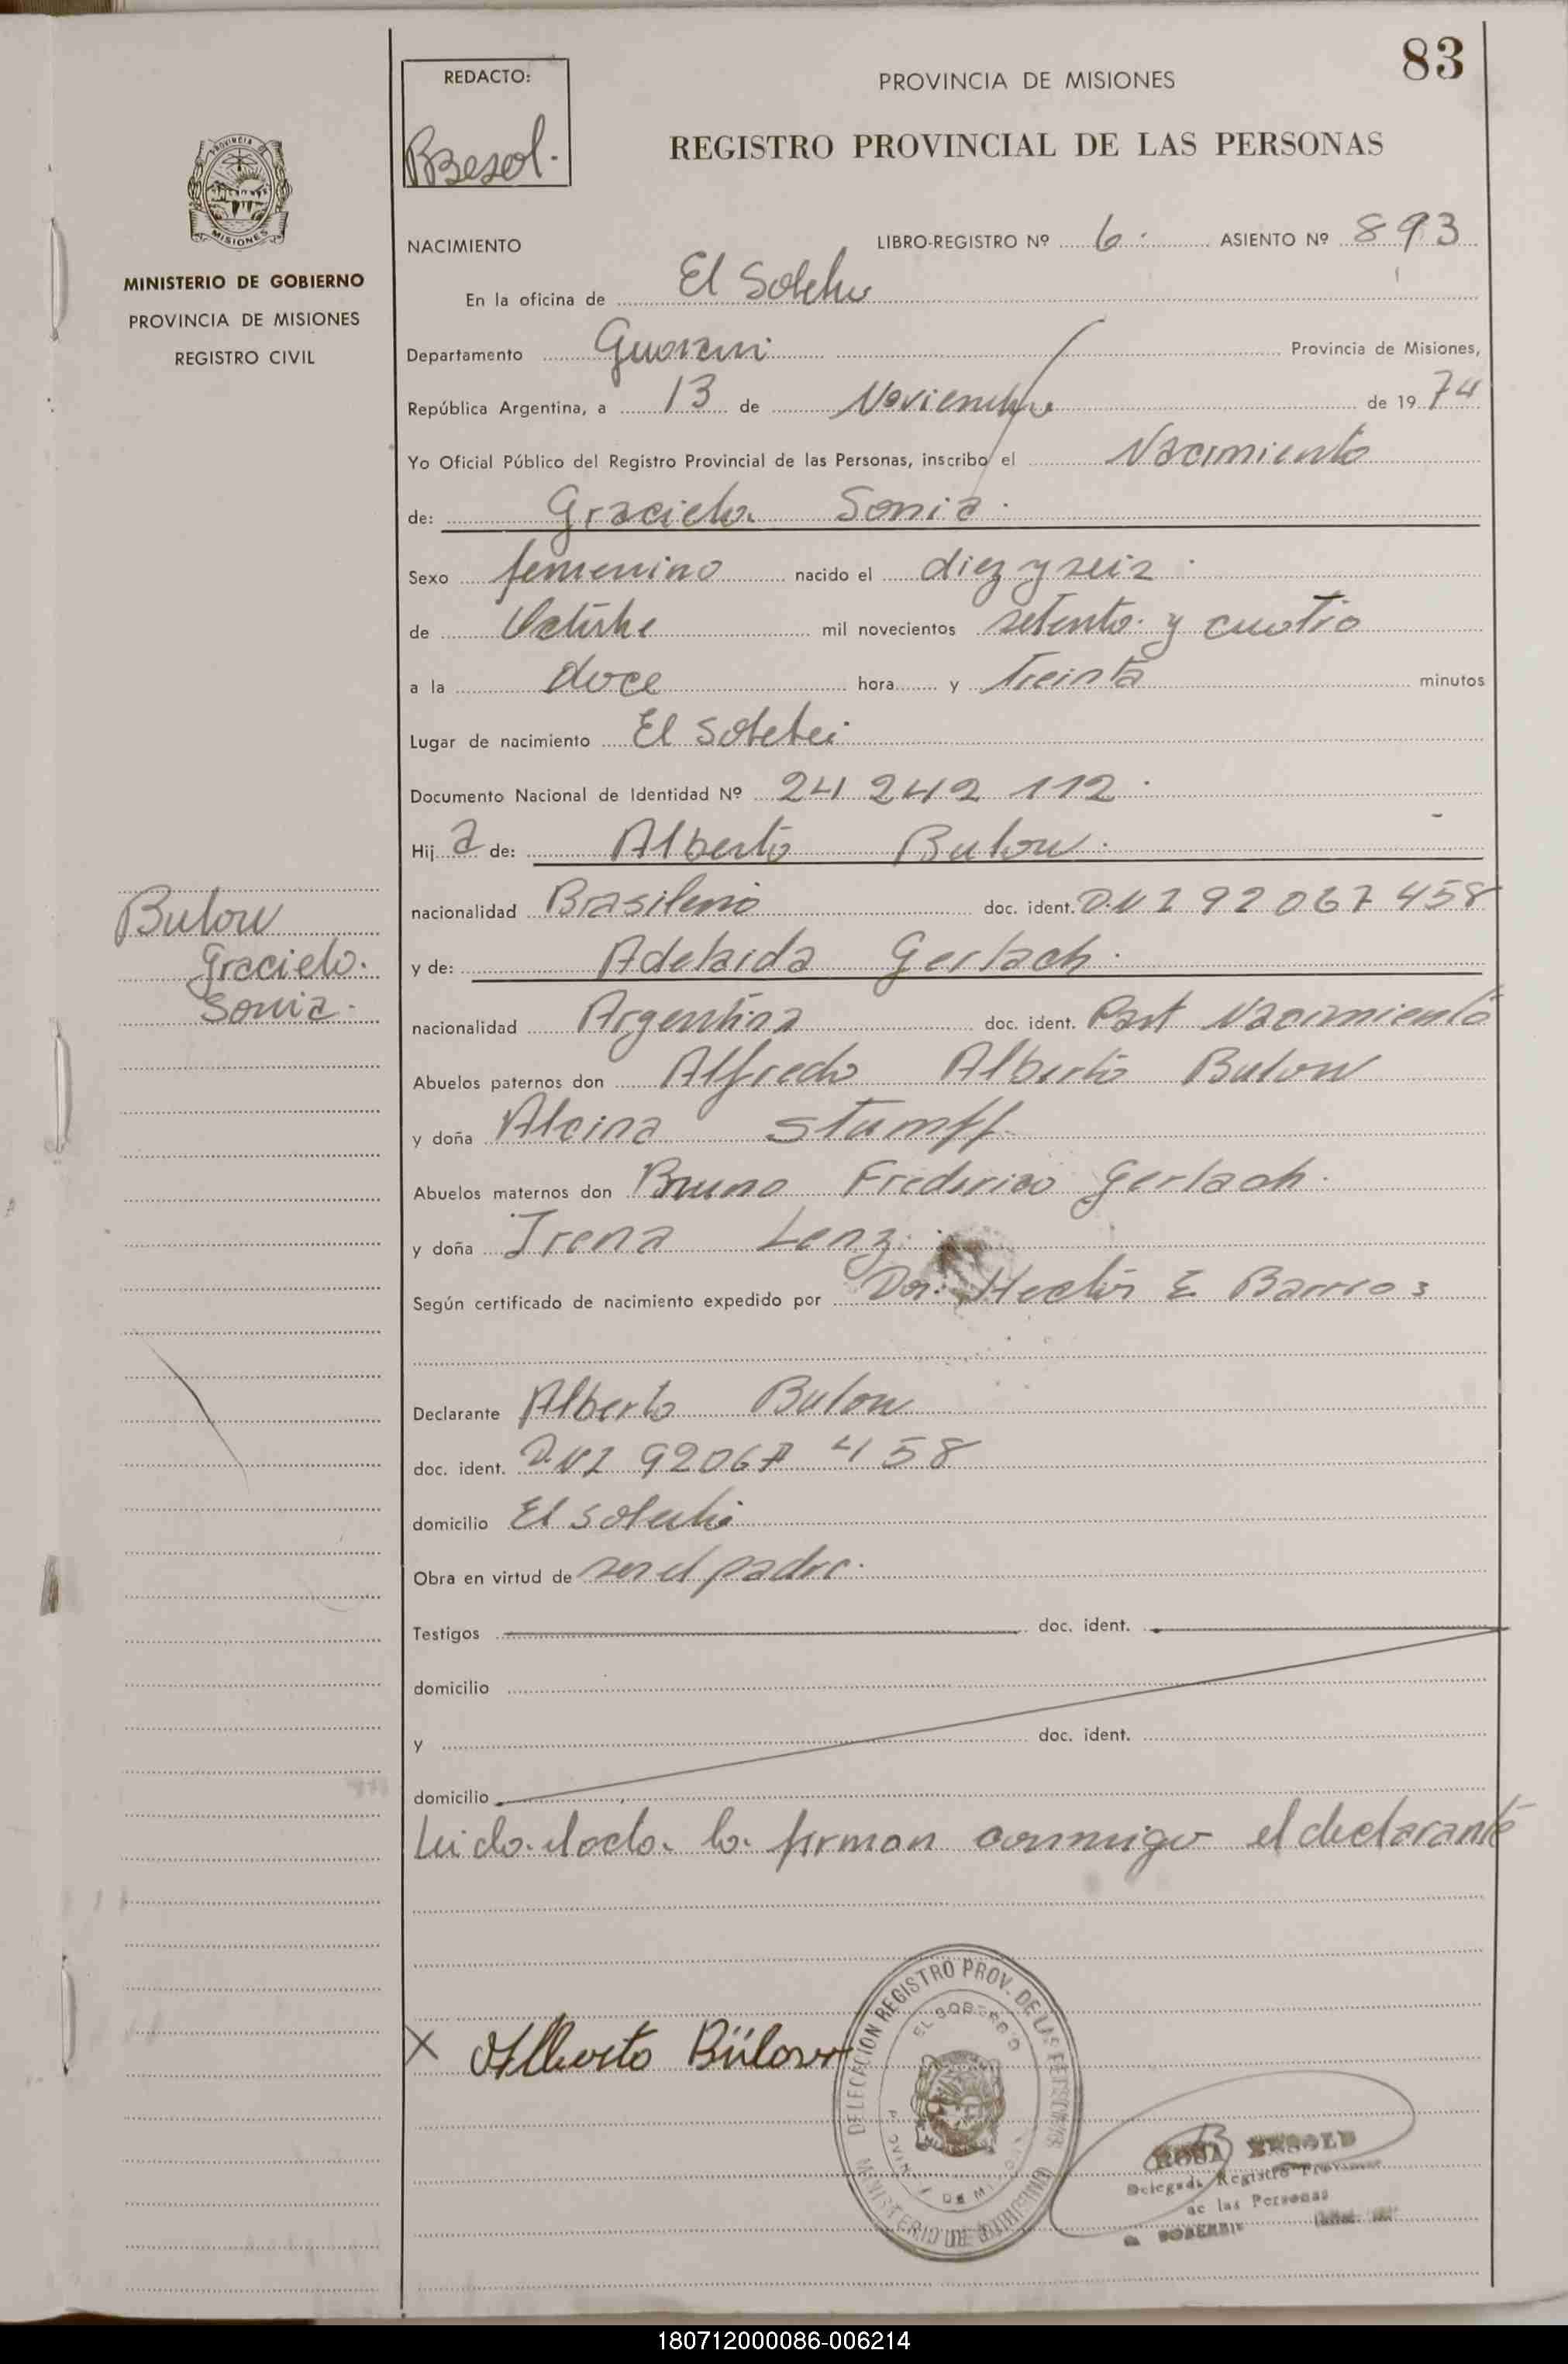 83
REDACTO:
Besol.
PROVINCIA DE MISIONES
REGISTRO PROVINCIAL DE LAS PERSONAS
MISIONES
MINISTERIO DE GOBIERNO
PROVINCIA DE MISIONES
REGISTRO CIVIL
NACIMIENTO LIBRO-REGISTRO Nº 6. ASIENTO Nº 893
En la oficina de El
Departamento Guarani Provincia de Misiones,
República Argentina, a 13 de Noviembre de 1974
Yo Oficial Público del Registro Provincial de las Personas, inscribo el Nacimiento
de: Graciela Sonia.
Sexo femenino nacido el diez y seis
de Octubre mil novecientos setenta y cuatro
a la doce hora y treinta minutos
Lugar de nacimiento El
Documento Nacional de Identidad Nº 24 242 112.
Hija de: Alberto Bulow.
nacionalidad Brasileño doc. ident. D.N I 92 067 458
y de: Adelaida Gerlach.
nacionalidad Argentina doc. ident. Part Nacimiento
Bulow
Graciela.
Sonia.
Abuelos paternos don Alfredo Alberto Bulow
y doña Alcina Stumff
Abuelos maternos don Bruno Frederico Gerlach.
y doña Irena Lenz.
Según certificado de nacimiento expedido por Dr. Hector E Barrios
Declarante Alberto Bulow
doc. ident. D.N I 92067 458
domicilio El
Obra en virtud de ser el padre.
Testigos doc. ident.
domicilio
y doc. ident.
domicilio
Leida el acta la firman conmigo el declarante
X Alberto Bülow
DELEGACION REGISTRO PROV. DE LAS PERSONAS
EL SOBERBIO
MINISTERIO DE GOBIERNO
ROSA BESOLD
Delegada Registro Provincial
de las Personas
EL SOBERBIO
180712000086-006214